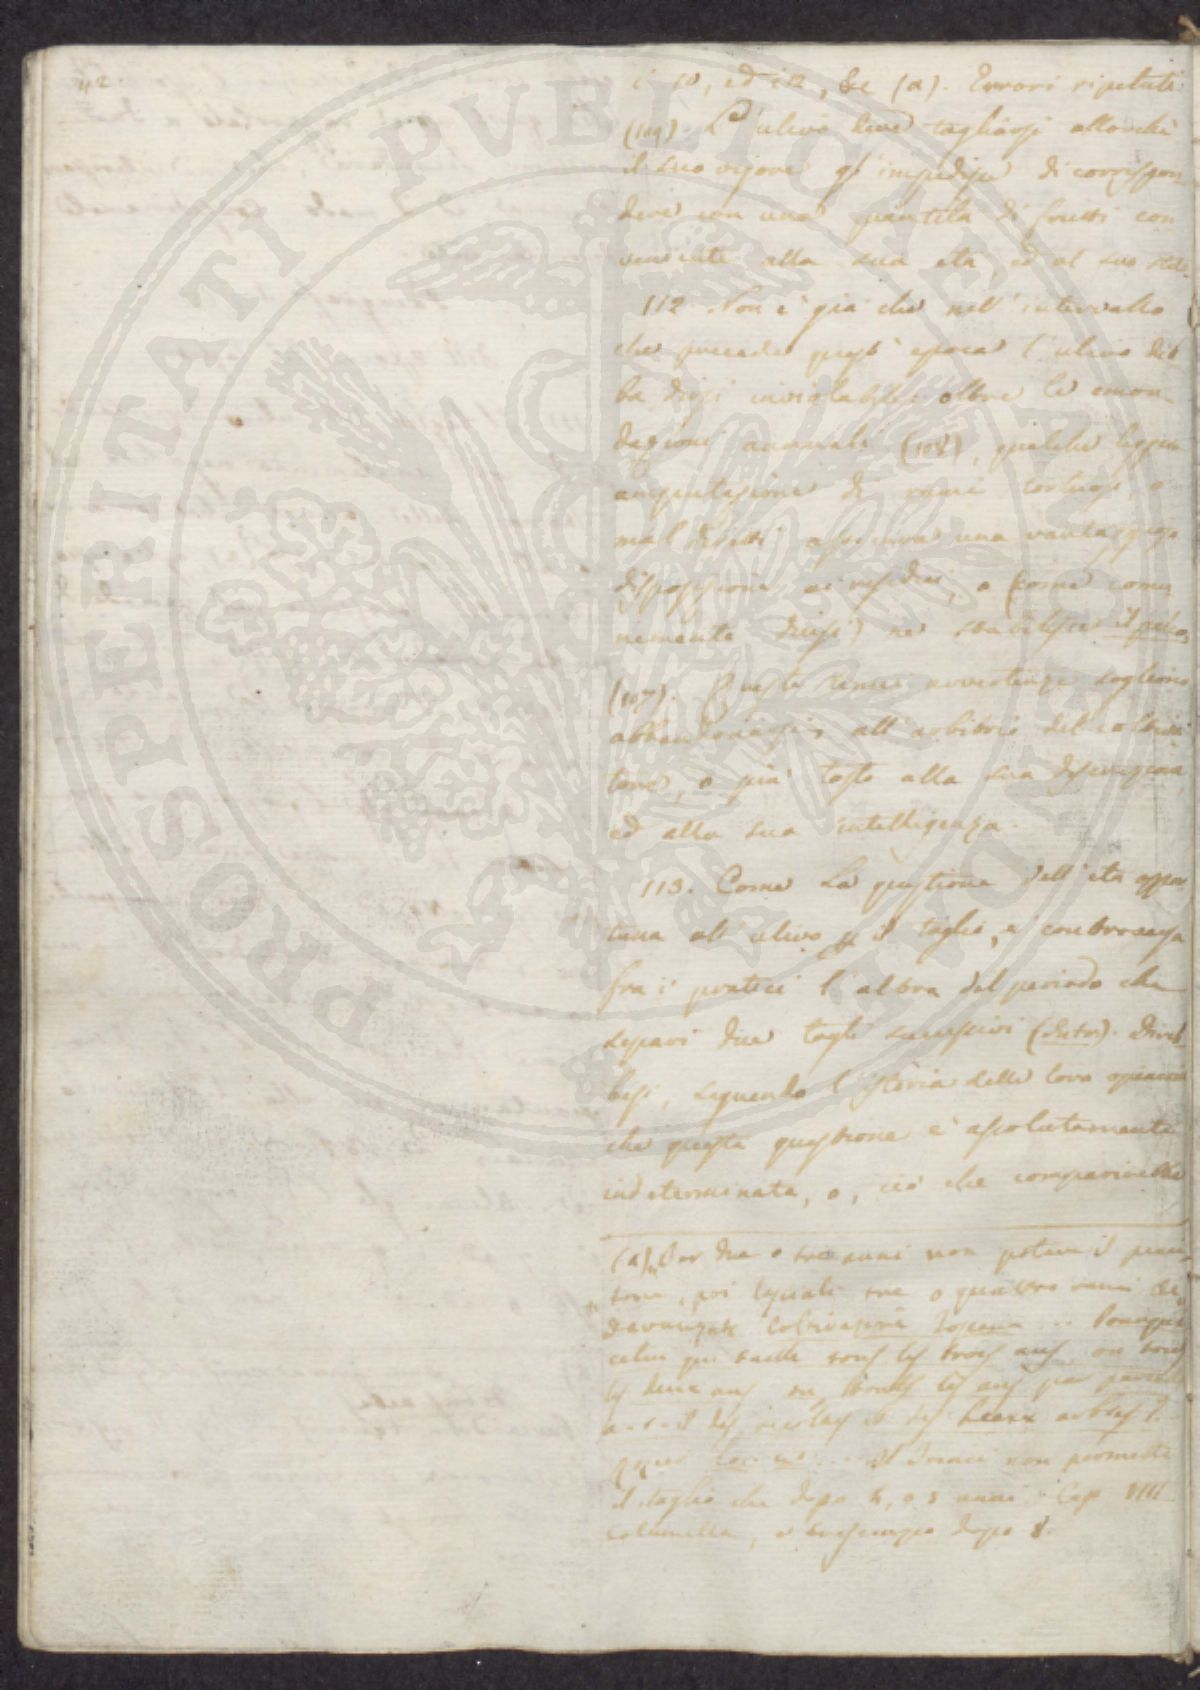 42.
i 10, ed i 12, &c (a). Errori ripetuti
(109). L'ulivo deve tagliarsi allorchè
il suo vigore gl'impedisce di corrispon-
dere con una quantità di frutti con
veniente alla sua età, ed al suo stato
112. Non è già che nell'intervallo
che precede quest'epoca l'ulivo deb
ba dirsi inviolabile: oltre le emon-
dazioni annuali (108), qualche leggera
amputazione di rami tortuosi, o
mal diretti assicura una vantaggiosa
disposizione ai residui, o (come comu
nemente dicesi) ne stabilisce il palco
(107). Queste tenui avvertenze sogliono
abbandonarsi all'arbitrio del coltiva
tore, o più tosto alla sua discrezione
ed alla sua intelligenza.
113. Come la questione dell'età oppor
tuna all'ulivo per il taglio, è controversa
fra i pratici l'altra del periodo che
separi due tagli successivi (dett.). Direb
besi, seguendo l'istoria delle loro opinioni
che questa questione è assolutamente
indeterminata, o, ciò che comparirebbe
(a) „ Per due o tre anni non potare il
„ poi tre o quattro rami
Coltivazione Toscana ... Pourquoi
celui qui taille tous les trois ans, ou tous
les deux ans ou tous les ans par
a-t-il des récoltes et des beaux arbres?
loc. cit. ... Il non permette
il taglio che dopo 4, o 5 anni. Cap. VIII
Columella, dopo 8.
PROSPERITATI PVBLICAE AVGENDAE